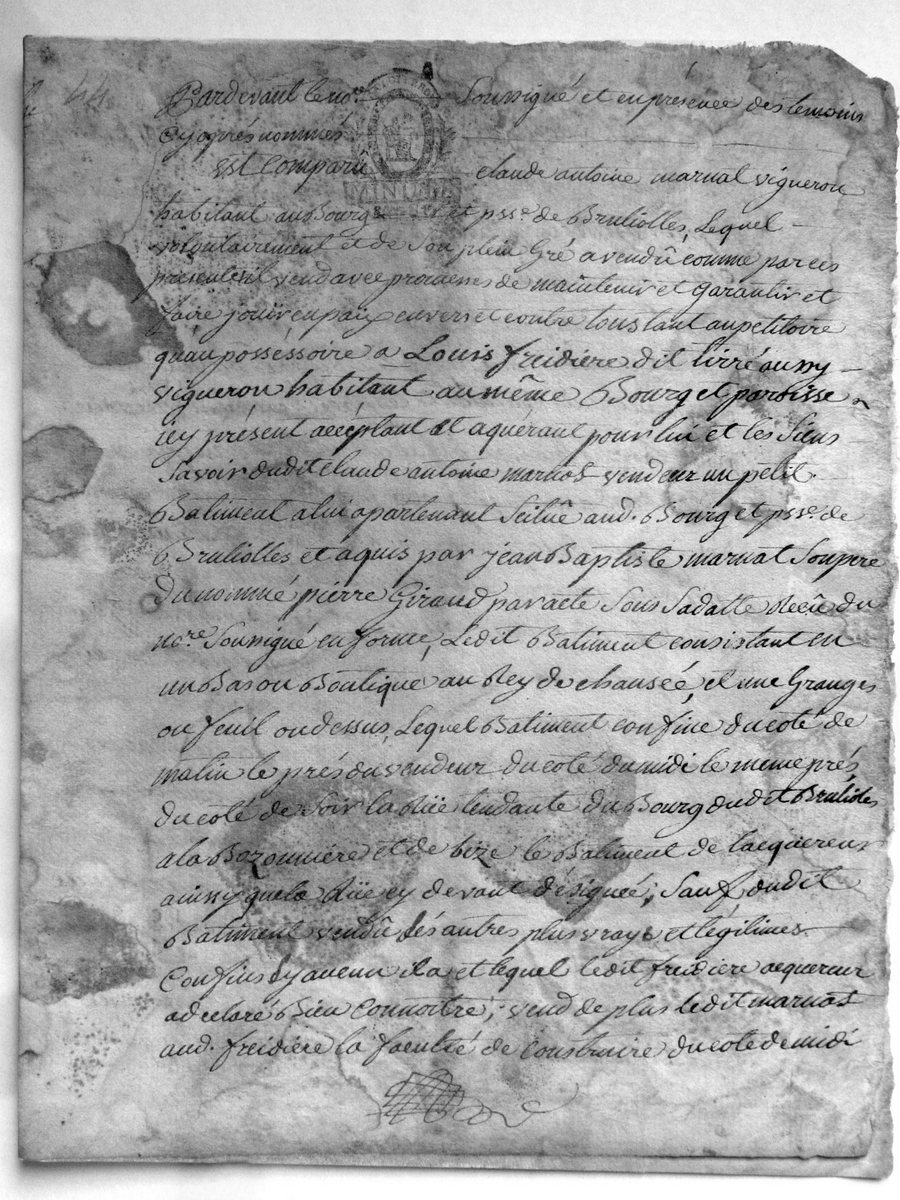 44
Pardevant le no.re Soussigné et en présence des temoins
Cy après nommés
MINUTES
Est Comparû claude antoine marnat vigneron
habitant au Bourg et pss.e de Brullioles, Lequel
volontairement et de Son plein Gré a vendû comme par ces
présentes il vend avec promesse de maintenir et Garantir et
faire joüir en paix envers et contre tous tant au petitoire
quau possessoire a Louis freidiere dit
vigneron habitant au même Bourg et paroisse
icy présent acceptant et aquérant pour lui et les Siens
Savoir dudit claude antoine marnat vendeur un petit
Batiment a lui apartenant Scituê aud. Bourg et pss.e de
Brulliolles et aquis par jean Baptiste marnat Son pere
du nommé pierre Giraud par acte Sous Sa datte Recû du
no.re Sousigné en forme, Ledit Batiment consistant en
un Bas ou Boutique au Rey de chausée, et une Grange
ou feuil au dessus, Lequel Batiment confine du coté de
matin le prés du vendeur du coté du midi le meme prés
du coté de Soir la Rüe tendante du Bourg dudit Brulioles
a la Bozonniere et de bize le Batiment de lacquereur
ainsy que la Rüe cy devant désignée; Sauf dudit
Batiment vendû Sés autres plus vrays et légitimes
Confins Sy aucun il a et lequel ledit freidiere acquereur
a declaré Bien Connoître; vend de plus ledit marnat
aud. freidiere la faculté de Construire du coté de midi